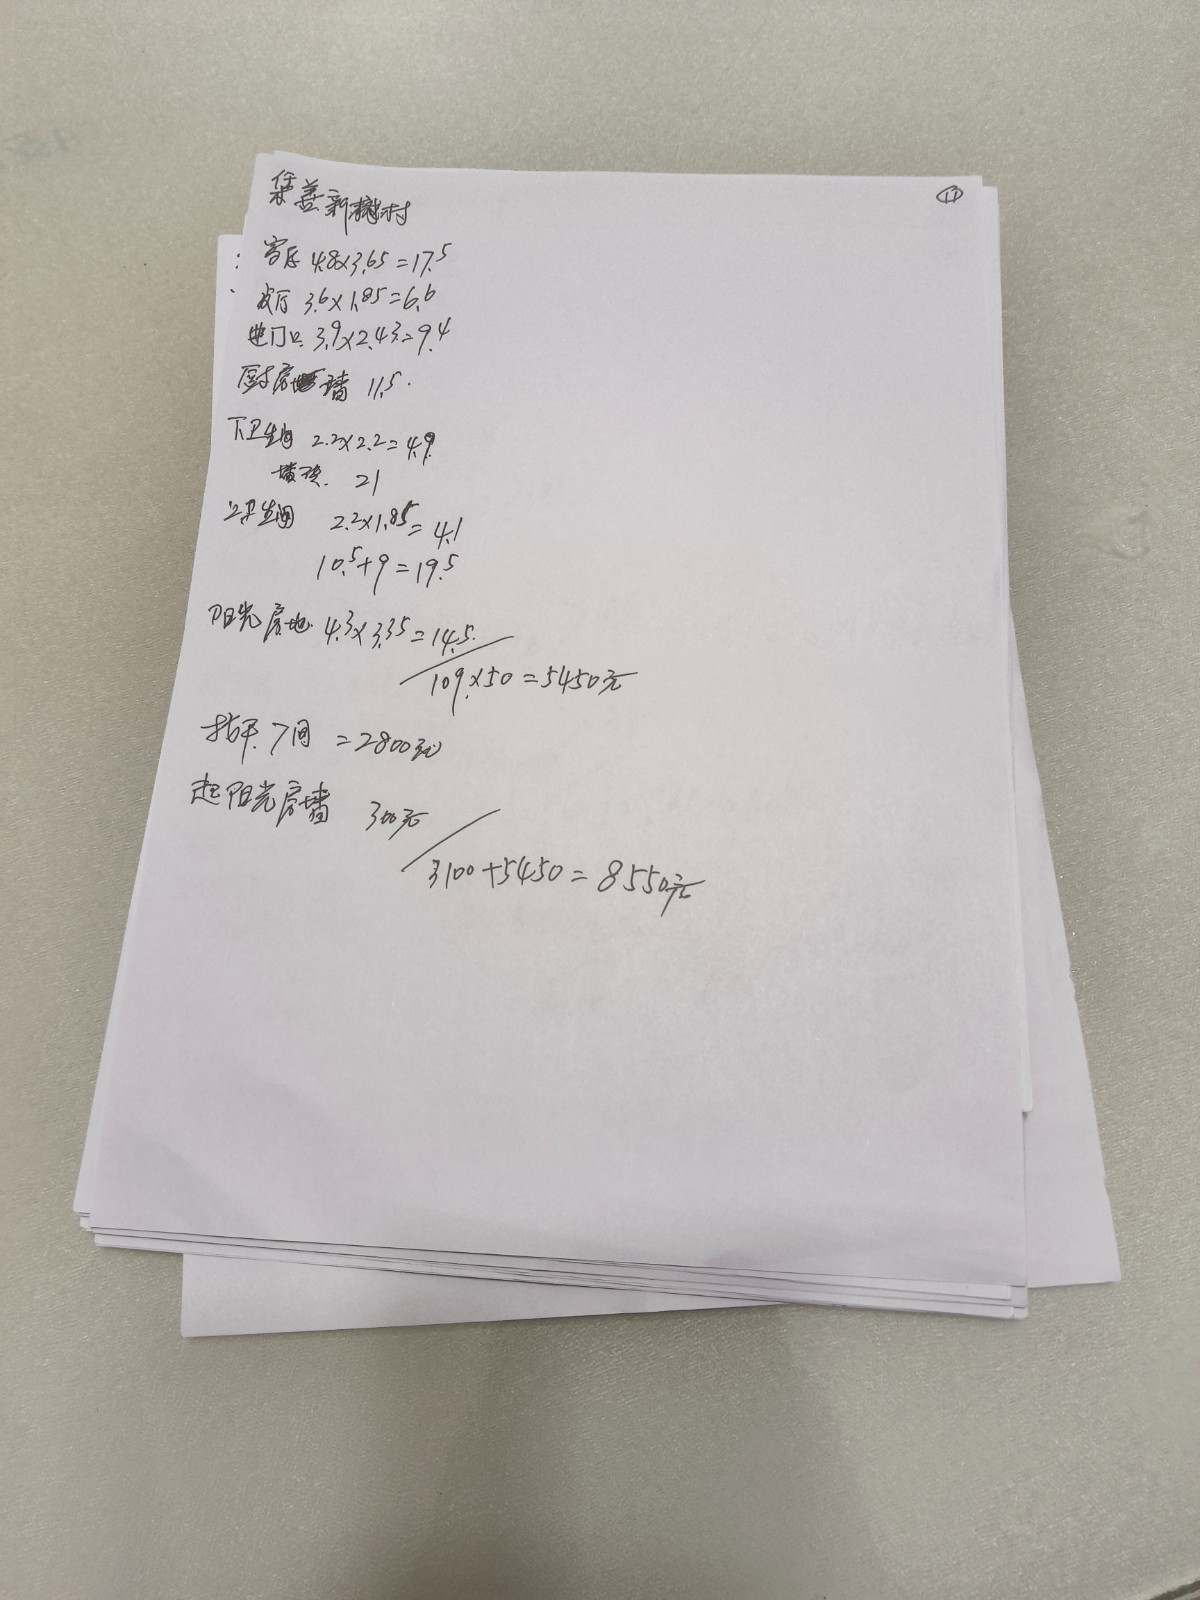 集善新村
⑪
客厅 4.8×3.65=17.5
3.6×1.85=6.6
进门口 3.9×2.43=9.4
厨房墙 11.5
下卫生间 2.2×2.2=4.9
墙砖 21
上卫生间 2.2×1.85=4.1
10.5+9=19.5
阳光房地 4.3×3.35=14.5
109×50=5450元
找平 7间 =2800元
起阳光房墙 300元
3100+5450=8550元